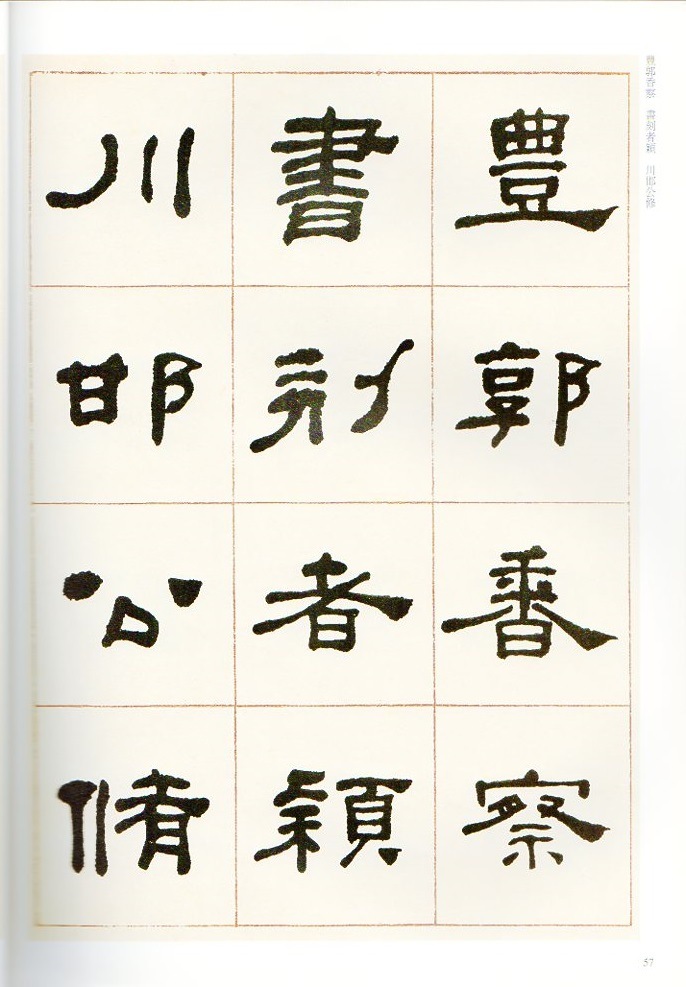 豊郭香察
書刻者穎
川邯公脩
豊郭香察　書刻者穎　川邯公脩
57